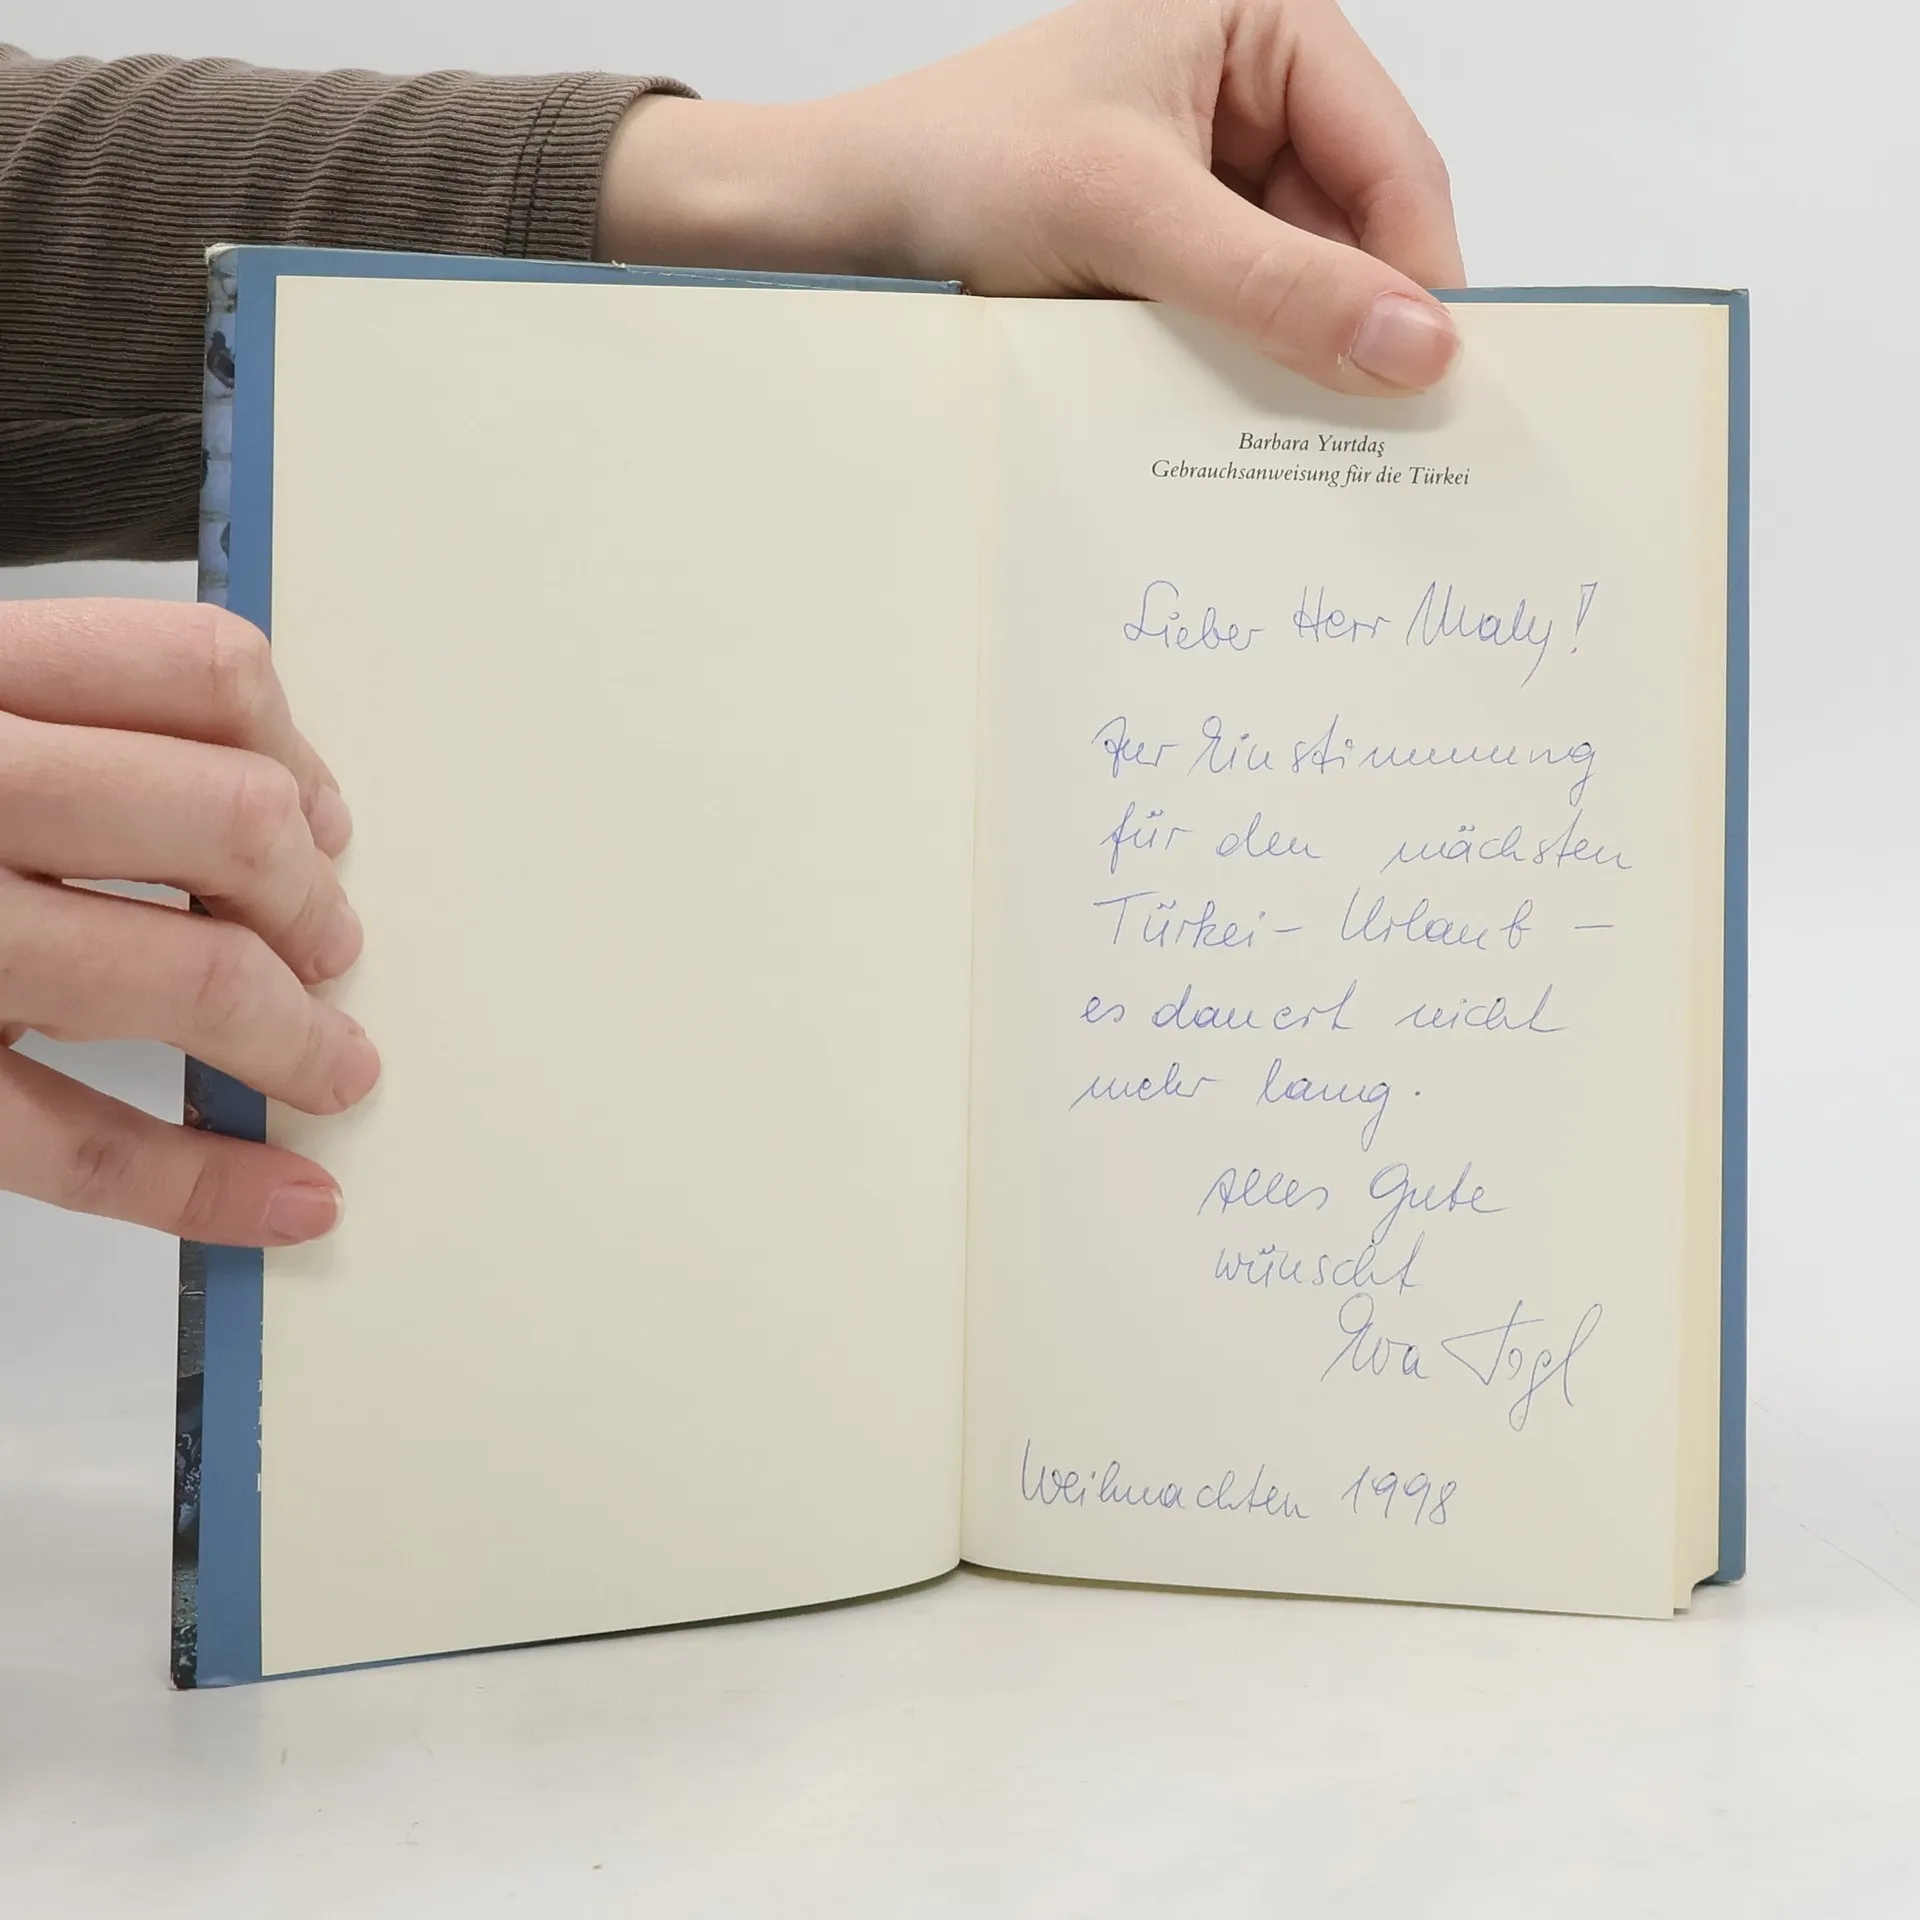 Barbara Yurtdaş
Gebrauchsanweisung für die Türkei
Lieber Herr Maly!
zur Einstimmung
für den nächsten
Türkei- Urlaub –
es dauert nicht
mehr lang.
Alles Gute
wünscht
Eva Togl
Weihnachten 1998